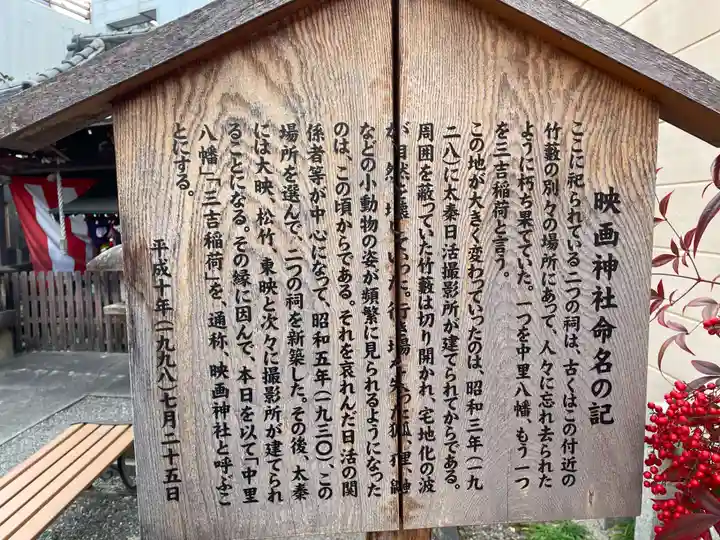 映画神社命名の記
ここに祀られている二つの祠は、古くはこの付近の
竹藪の別々の場所にあって、人々に忘れ去られた
ように朽ち果てていた。一つを中里八幡、もう一つ
を三吉稲荷と言う。
この地が大きく変わっていったのは、昭和三年(一九
二八)に太秦日活撮影所が建てられてからである。
周囲を蔽っていた竹藪は切り開かれ、宅地化の波
が自然を壊していった。行き場を失った狐、狸、鼬
などの小動物の姿が頻繁に見られるようになった
のは、この頃からである。それを哀れんだ日活の関
係者等が中心になって、昭和五年(一九三〇)、この
場所を選んで、二つの祠を新築した。その後、太秦
には大映、松竹、東映と次々に撮影所が建てられ
ることになる。その縁に因んで、本日を以て「中里
八幡」「三吉稲荷」を、通称、映画神社と呼ぶこ
とにする。
平成十年(一九九八)七月二十五日